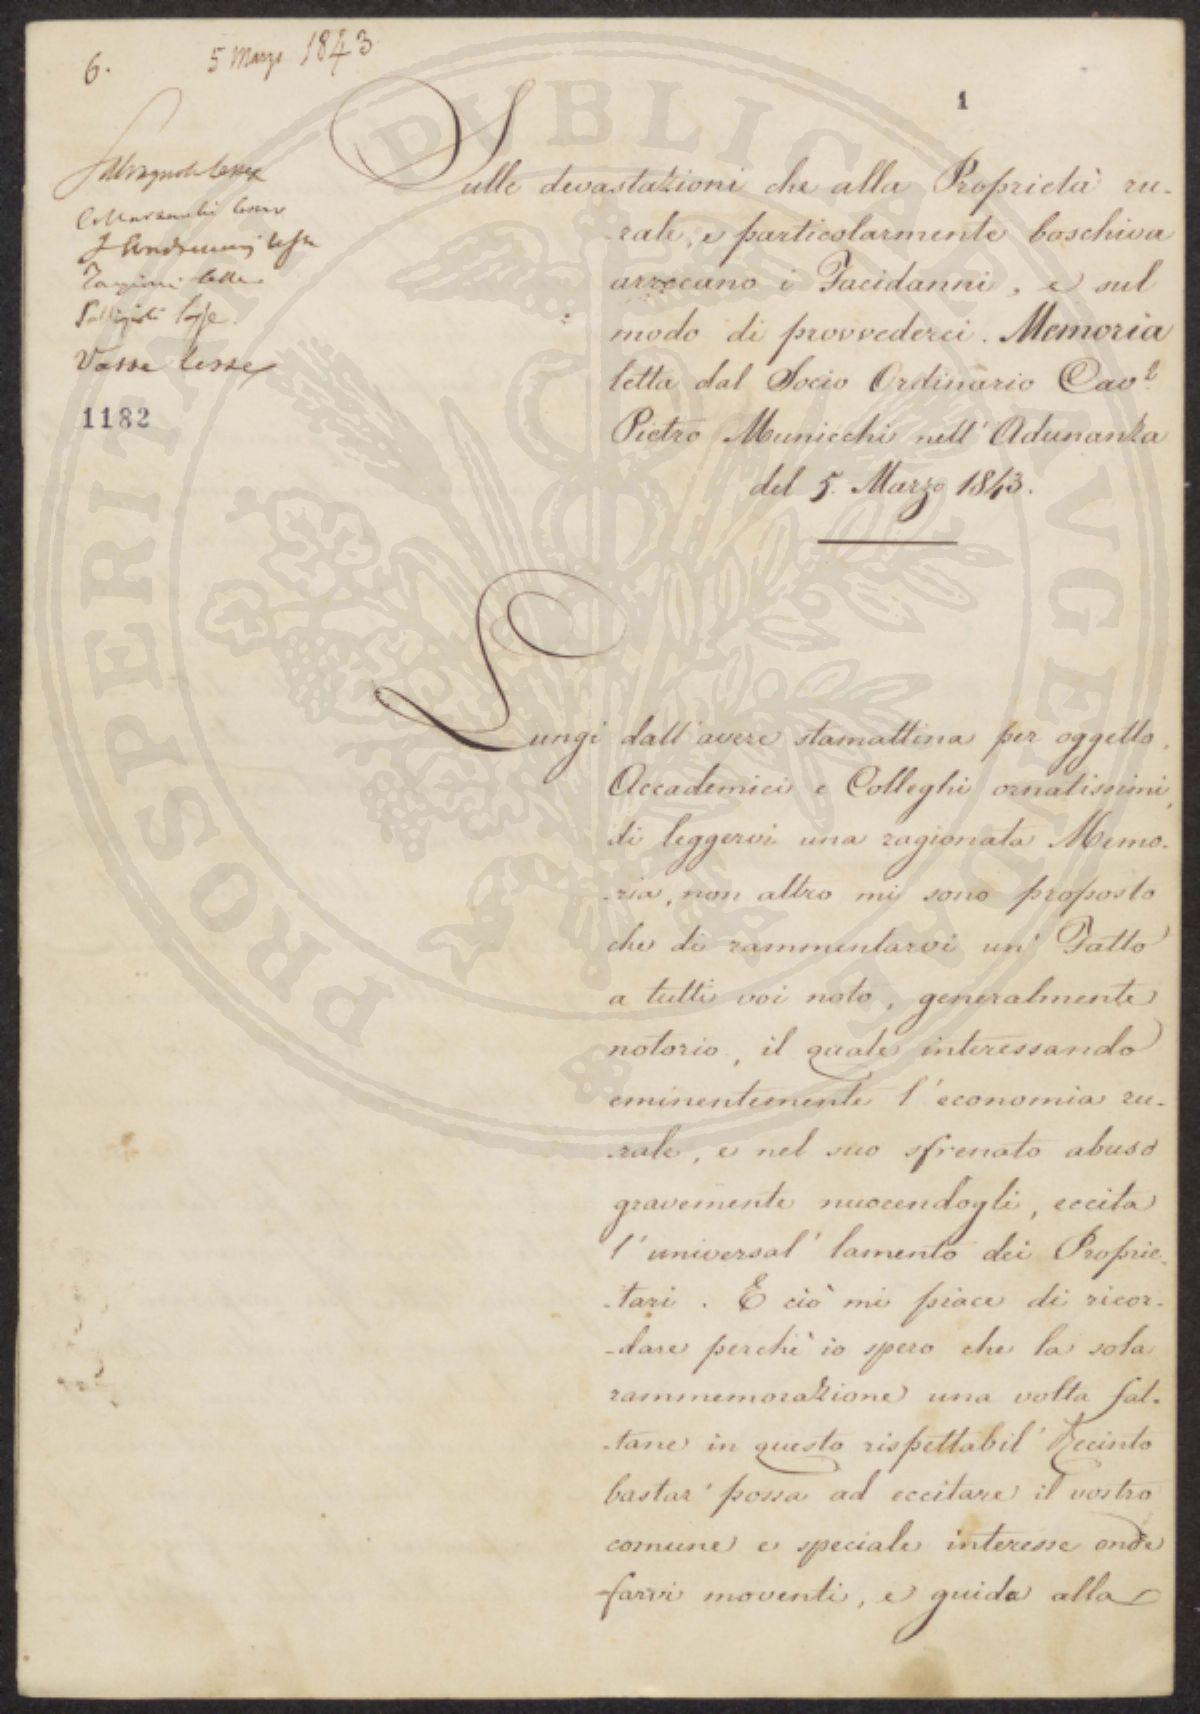 6.
5 Marzo 1843
1
Lesse
Lesse
Vasse Lesse
1182
Sulle devastazioni che alla Proprietà ru-
-rale, e particolarmente boschiva
arrecano i Facidanni, e sul
modo di provvederci. Memoria
letta dal Socio Ordinario Cav.e
Pietro Municchi nell' Adunanza
del 5. Marzo 1843.
Lungi dall' avere stamattina per oggetto,
Accademici e Colleghi ornatissimi,
di leggervi una ragionata Memo-
-ria, non altro mi sono proposto
che di rammentarvi un' Fatto
a tutti voi noto, generalmente
notorio, il quale interessando
eminentemente l' economia ru-
-rale, e nel suo sfrenato abuso
gravemente nuocendogli, eccita
l' universal' lamento dei Proprie-
-tari. E ciò mi piace di ricor-
-dare perchè io spero che la sola
rammemorazione una volta fat-
-tane in questo rispettabil' Recinto
bastar' possa ad eccitare il vostro
comune e speciale interesse onde
farvi moventi, e guida alla
PROSPERITATI PUBLICAE AUGENDAE